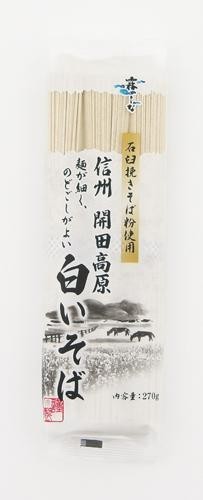 霧しな
石臼挽きそば粉使用
信州 開田高原
麺が細く、
のどごしがよい
白いそば
内容量:270g